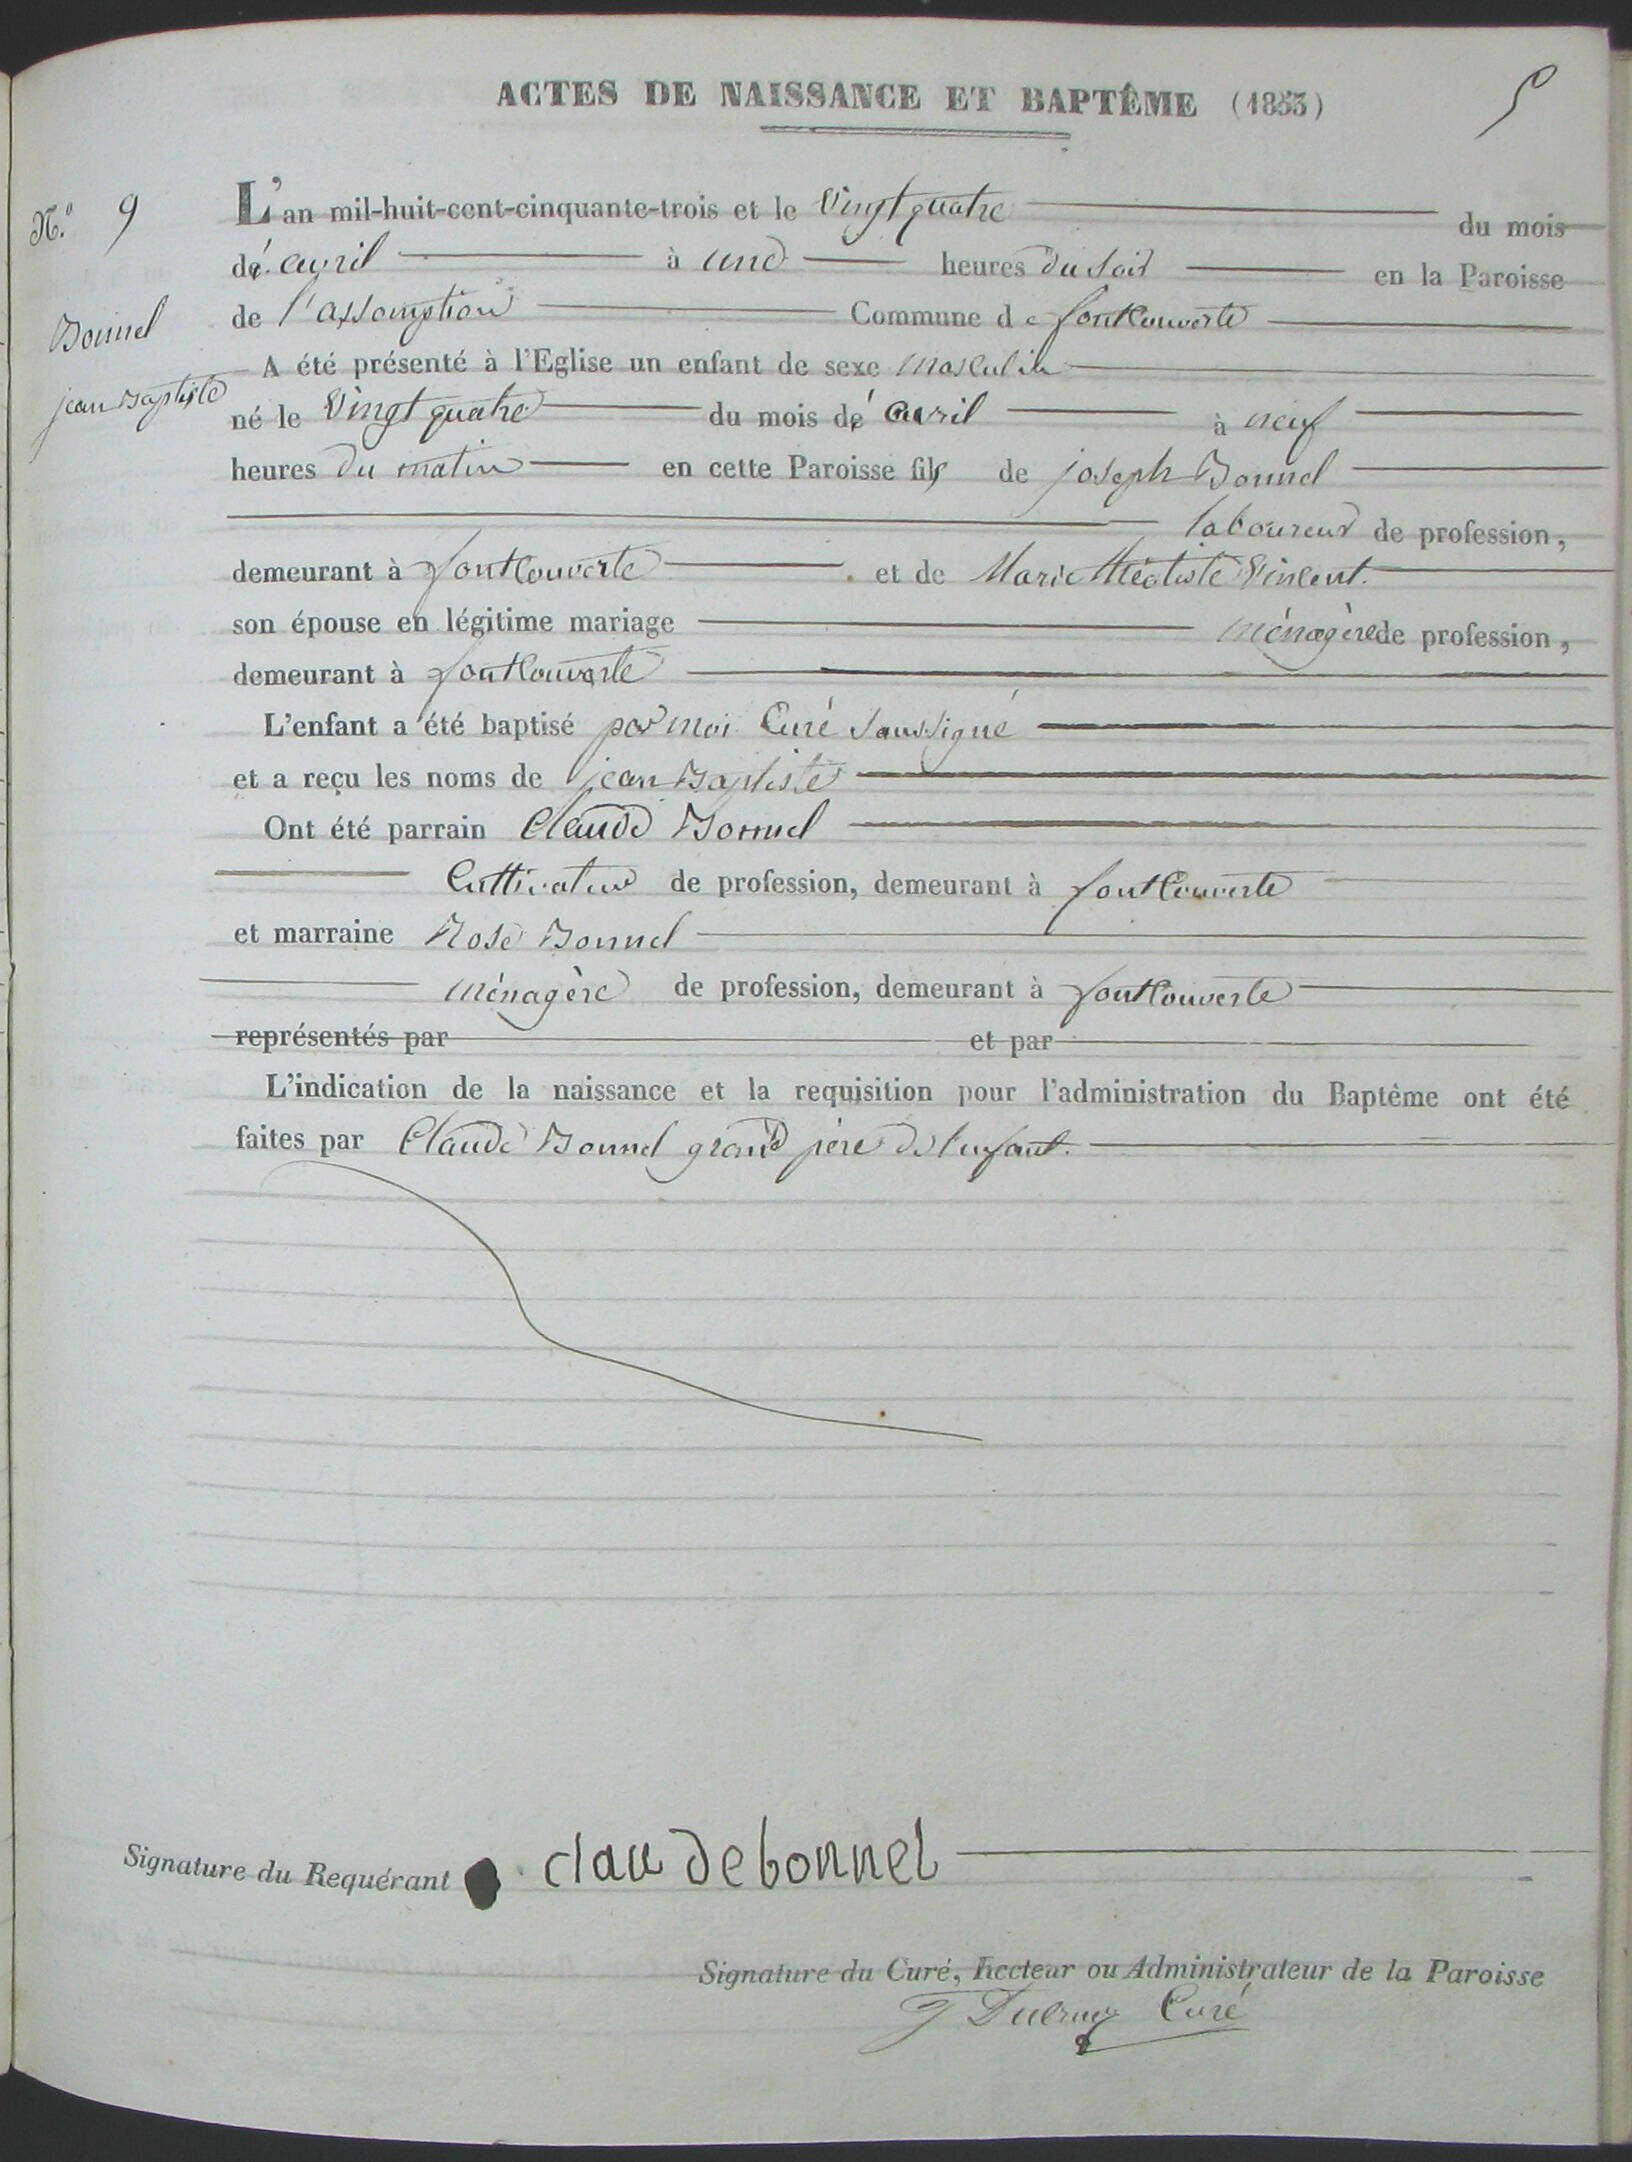 ACTES DE NAISSANCE ET BAPTÊME (1853)
5
N.º 9
L'an mil-huit-cent-cinquante-trois et le vingt quatre du mois
d'avril à une heures du soir en la Paroisse
de l'assomption Commune de fontCouverte
Bonnel
jean Baptiste
A été présenté à l'Eglise un enfant de sexe masculin
né le vingt quatre du mois d'avril à neuf
heures du matin en cette Paroisse fils de joseph Bonnel
laboureur de profession,
demeurant à fontCouverte et de Marie Vincent.
son épouse en légitime mariage ménagère de profession,
demeurant à fontCouverte
L'enfant a été baptisé par moi Curé soussigné
et a reçu les noms de jean Baptiste
Ont été parrain Claude Bonnel
Cultivateur de profession, demeurant à fontCouverte
et marraine Rose Bonnel
ménagère de profession, demeurant à fontCouverte
représentés par et par
L'indication de la naissance et la requisition pour l'administration du Baptême ont été
faites par Claude Bonnel grand père de l'enfant.
Signature du Requérant claudebonnel
Signature du Curé, Recteur ou Administrateur de la Paroisse
Curé